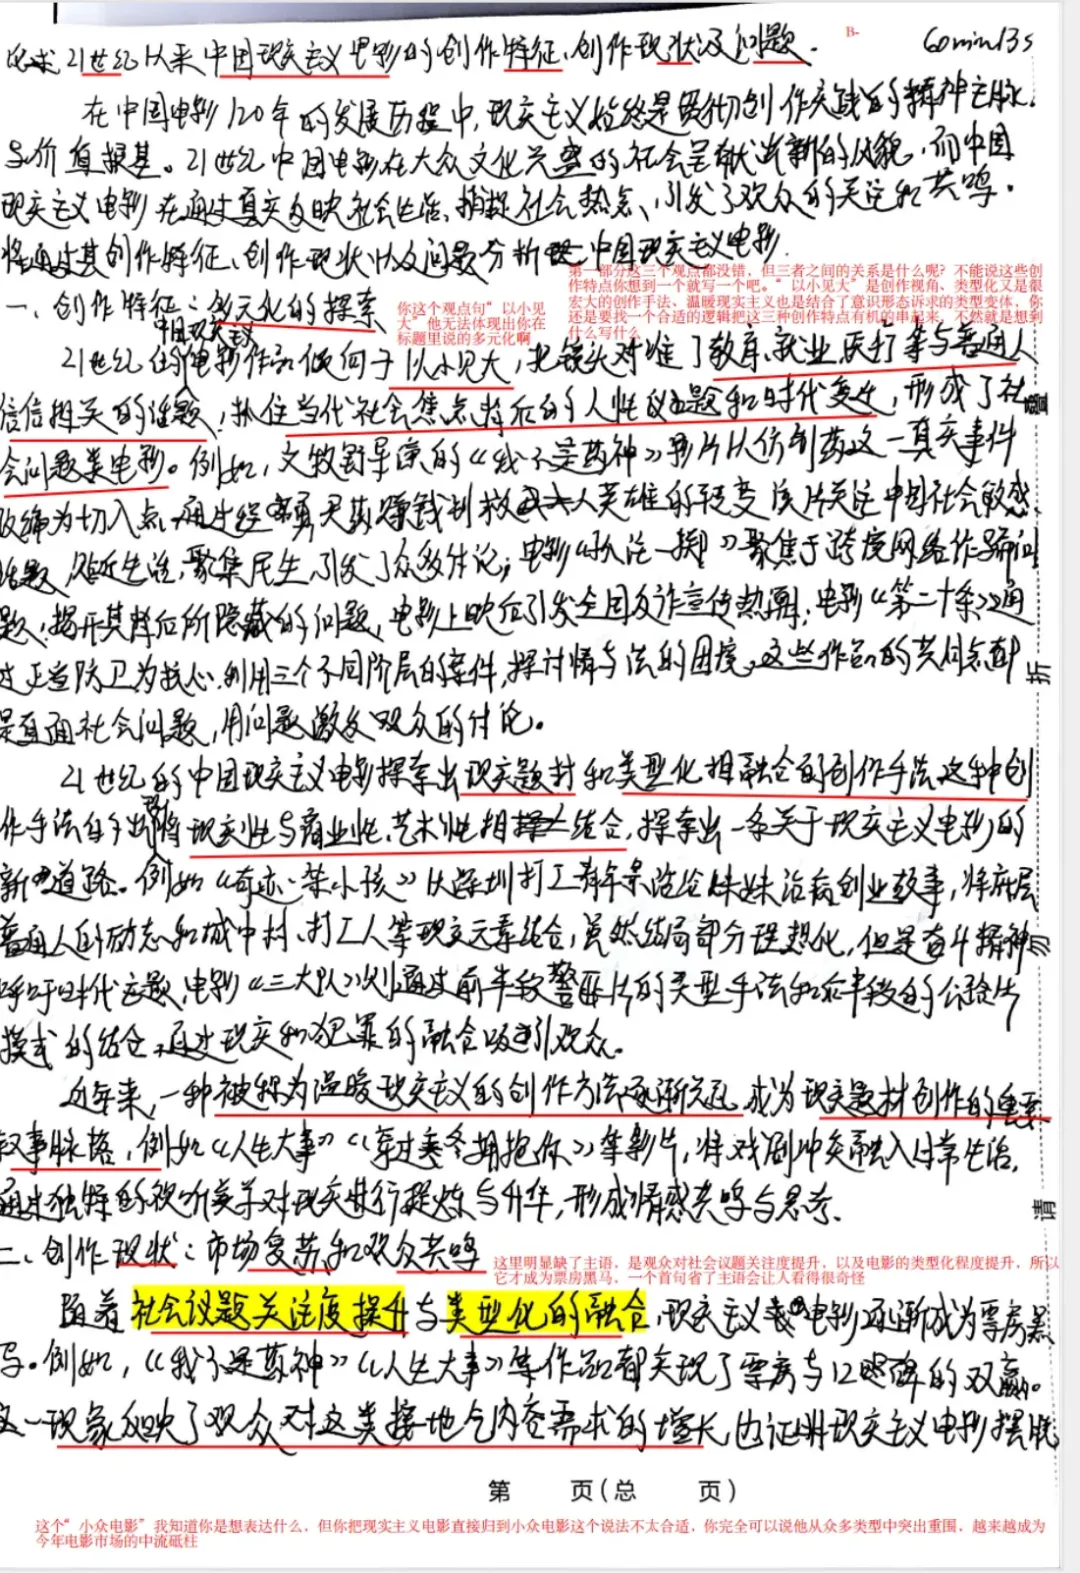 论述21世纪以来中国现实主义电影的创作特征、创作现状及问题.
B-
60min13s
在中国电影120年的发展历程中,现实主义始终是贯彻创作实践的精神主脉,
与价值根基。21世纪中国电影在大众文化兴盛的社会呈献出新的风貌,而中国
现实主义电影在通过真实反映社会生活、捕捉社会热点、引发了观众的关注和共鸣。
将通过其创作特征、创作现状以及问题分析 中国现实主义电影
第一部分这三个观点都没错,但三者之间的关系是什么呢?不能说这些创
作特点你想到一个就写一个吧。“以小见大”是创作视角、类型化又是很
宏大的创作手法、温暖现实主义也是结合了意识形态诉求的类型变体,你
还是要找一个合适的逻辑把这三种创作特点有机的串起来,不然就是想到
什么写什么
一、创作特征:多元化的探索
你这个观点句“以小见
大”他无法体现出你在
标题里说的多元化啊
中国现实主义
21世纪的电影作品倾向于以小见大,把镜头对准了教育、就业、医疗等与普通人
信信相关的话题,抓住当代社会焦点背后的人性议题和时代变迁,形成了社
会问题类电影。例如,文牧野导演的《我不是药神》影片从仿制药这一真实事件
改编为切入点,通过程勇 从赚钱到救 人英雄的转变 该片关注中国社会敏感
话题,贴近生活,聚集民生,引发了众多讨论;电影《孤注一掷》聚焦于跨度网络诈骗问
题,揭开其背后所隐藏的问题,电影上映后引发全国反诈宣传热潮;电影《第二十条》通
过正当防卫为核心,利用三个不同阶层的案件,探讨情与法的困境,这些作品的共同点都
是直面社会问题,用问题激发观众的讨论。
21世纪的中国现实主义电影探索出现实题材和类型化相融合的创作手法,这种创
作手法 将现实性与商业性、艺术性相 结合,探索出一条关于现实主义电影的
新 道路。例如《奇迹·笨小孩》以深圳打工青年景浩给妹妹治病创业故事,将底层
普通人的励志和城中村、打工人等现实元素结合,虽然结局部分理想化,但是奋斗精神
呼吁时代主题,电影《三大队》则通过前半段警匪片的类型手法和后半段的公路片
模式的结合,通过现实和犯罪的融合吸引观众。
近年来,一种被称为温暖现实主义的创作方法逐渐 成为现实题材创作的重要
叙事脉络,例如《人生大事》《穿过寒冬拥抱你》等影片,将戏剧冲突融入日常生活,
通过独特的视听美学对现实进行提炼与升华,形成情感共鸣与思考.
二、创作现状:市场复苏和观众共鸣
这里明显缺了主语,是观众对社会议题关注度提升,以及电影的类型化程度提升,所以
它才成为票房黑马,一个首句省了主语会让人看得很奇怪
随着社会议题关注度提升与类型化的融合,现实主义 电影逐渐成为票房黑
马。例如,《我不是药神》《人生大事》等作品都实现了票房与口碑的双赢。
这一现象反映了观众对这类接地气内容需求的增长,也证明现实主义电影摆脱
第 页(总 页)
这个“小众电影”我知道你是想表达什么,但你把现实主义电影直接归到小众电影这个说法不太合适,你完全可以说他从众多类型中突出重围,越来越成为
今年电影市场的中流砥柱
叠
折
请